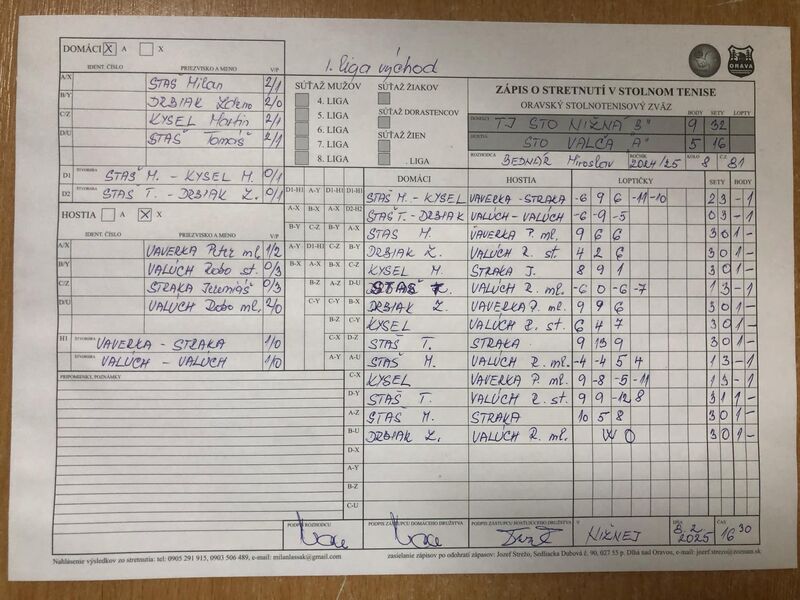 1. liga východ
DOMÁCI X A X
IDENT. ČÍSLO PRIEZVISKO A MENO V/P
A/X STAŠ Milan 2/1
B/Y DRBIAK Zdeno 2/0
C/Z KYSEL Martin 2/1
D/U STAŠ Tomáš 2/1
D1 ŠTVORHRA STAŠ M. - KYSEL M. 0/1
D2 ŠTVORHRA STAŠ T. - DRBIAK Z. 0/1
HOSTIA A X X
IDENT. ČÍSLO PRIEZVISKO A MENO V/P
A/X VAVERKA Peter ml. 1/2
B/Y VALÚCH Robo st. 0/3
C/Z STRAKA Jeremiáš 0/3
D/U VALÚCH Robo ml. 2/0
H1 ŠTVORHRA VAVERKA - STRAKA 1/0
ŠTVORHRA VALUCH - VALUCH 1/0
PRIPOMIENKY, POZNÁMKY
SÚŤAŽ MUŽOV
4. LIGA
5. LIGA
6. LIGA
7. LIGA
8. LIGA
SÚŤAŽ ŽIAKOV
SÚŤAŽ DORASTENCOV
SÚŤAŽ ŽIEN
. LIGA
ORAVA
ZÁPIS O STRETNUTÍ V STOLNOM TENISE
ORAVSKÝ STOLNOTENISOVÝ ZVÄZ
BODY SETY LOPTY
DOMÁCI TJ STO NIŽNÁ "B" 9 32
HOSTIA STO VALČA "A" 5 16
ROZHODCA BEDNÁR Miroslav ROČNÍK 2024/25 KOLO 8 Č.Z. 81
DOMÁCI HOSTIA LOPTIČKY SETY BODY
D1-H1 A-Y D1-H1 D1-H1 STAŠ M. - KYSEL VAVERKA - STRAKA -6 9 6 -11 -10 2 3 - 1
A-X B-X A-X D2-H2 STAŠ T. - DRBIAK VALÚCH - VALÚCH -6 -9 -5 0 3 - 1
B-Y C-Z B-Y A-X STAŠ M. VAVERKA P. ml. 9 6 6 3 0 1 -
A-Y D1-H1 C-Z B-Y DRBIAK Z. VALÚCH R. st. 4 2 6 3 0 1 -
B-X A-X B-X C-Z KYSEL M. STRAKA J. 8 9 1 3 0 1 -
B-Z A-Z D-U STAŠ T. VALUCH R. ml. -6 0 -6 -7 1 3 - 1
C-Y C-Y B-X DRBIAK Z. VAVERKA P. ml. 9 9 6 3 0 1 -
B-Z C-Y KYSEL VALÚCH R. st. 6 4 7 3 0 1 -
C-X D-Z STAŠ T. STRAKA 9 13 9 3 0 1 -
A-Y A-U STAŠ M. VALUCH R. ml. -4 -4 5 4 1 3 - 1
C-X KYSEL VAVERKA P. ml. 9 -8 -5 -11 1 3 - 1
D-Y STAŠ T. VALÚCH R. st. 9 9 -12 8 3 1 1 -
A-Z STAŠ M. STRAKA 10 5 8 3 0 1 -
B-U DRBIAK Z. VALÚCH R. ml. W O 3 0 1 -
D-X
A-Y
B-Z
C-U
PODPIS ROZHODCU PODPIS ZÁSTUPCU DOMÁCEHO DRUŽSTVA PODPIS ZÁSTUPCU HOSŤUJÚCEHO DRUŽSTVA V NIŽNEJ DŇA 8.2 2025 ČAS 16 30
Nahlásenie výsledkov zo stretnutia: tel: 0905 291 915, 0903 506 489, e-mail: milanlassak@gmail.com
zasielanie zápisov po odohratí zápasov: Jozef Strežo, Sedliacka Dubová č. 90, 027 55 p. Dlhá nad Oravou, e-mail: jozef.strezo@zoznam.sk